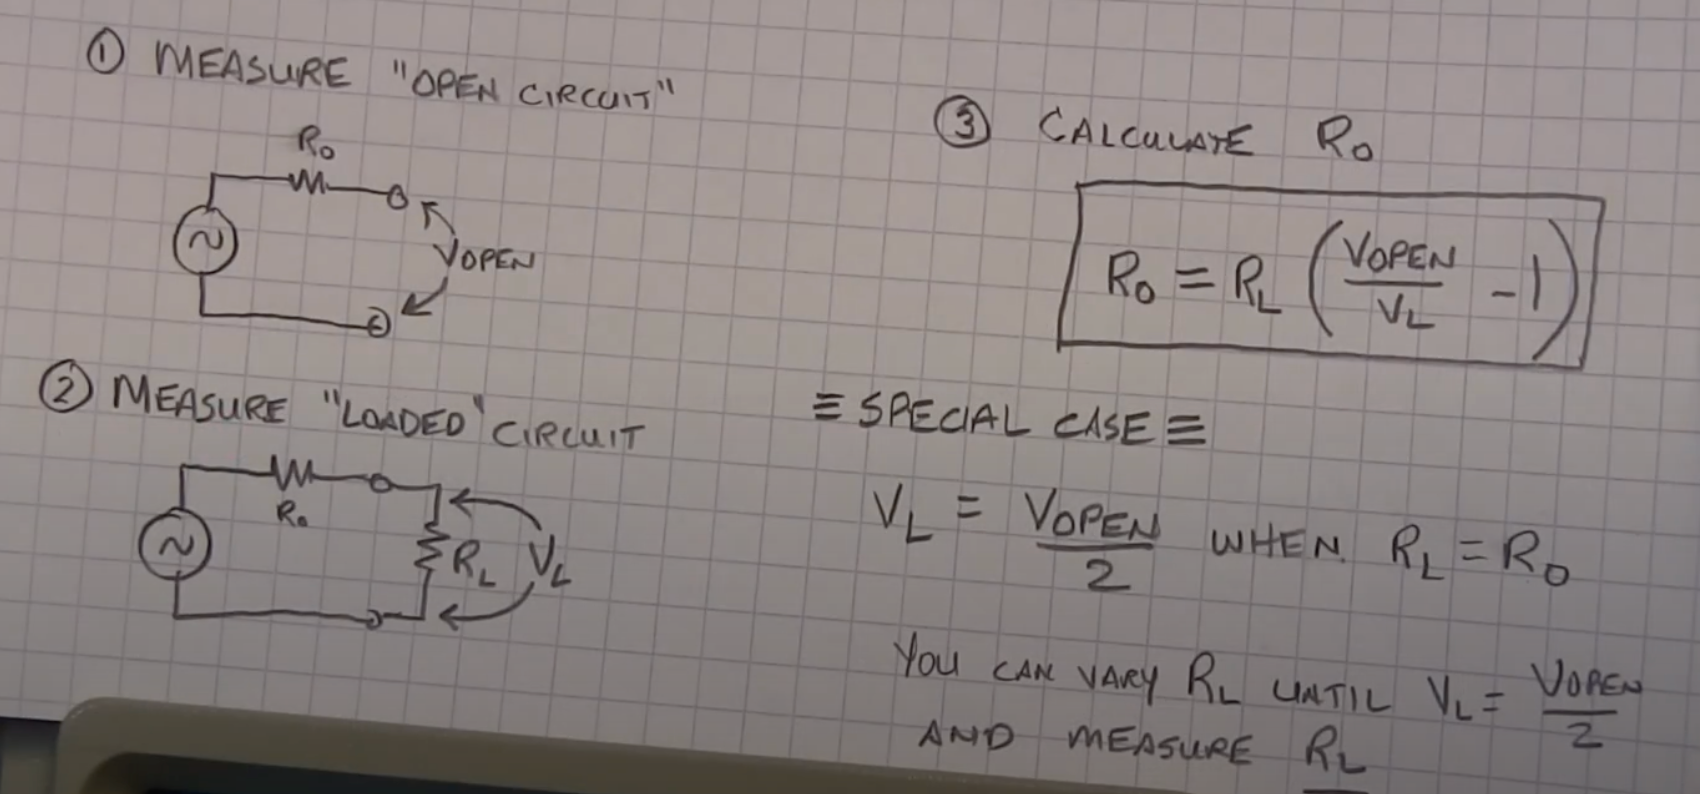 ① MEASURE "OPEN CIRCUIT"
R₀
~
VOPEN
② MEASURE "LOADED" CIRCUIT
R₀
~
RL
VL
③ CALCULATE R₀
R₀ = RL (VOPEN/VL - 1)
≡ SPECIAL CASE ≡
VL = VOPEN/2 WHEN RL = R₀
YOU CAN VARY RL UNTIL VL = VOPEN/2
AND MEASURE RL